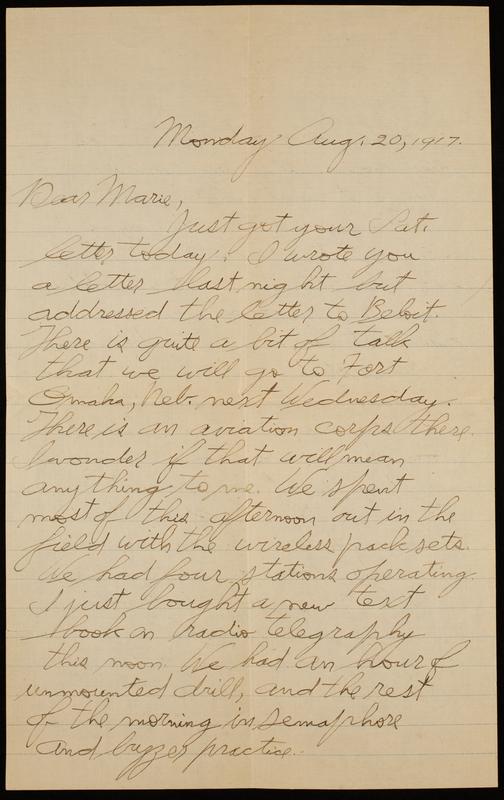 Monday Aug. 20, 1917.
Dear Marie,
Just got your Sat.
letter today. I wrote you
a letter last night but
addressed the letter to Beloit.
There is quite a bit of talk
that we will go to Fort
Omaha, Neb. next Wednesday.
There is an aviation corps there.
I wonder if that will mean
anything to me. We spent
most of this afternoon out in the
field with the wireless pack sets.
We had four stations operating.
I just bought a new text
book on radio telegraphy
this noon. We had an hour of
unmounted drill, and the rest
of the morning in semaphore
and buzzer practice.